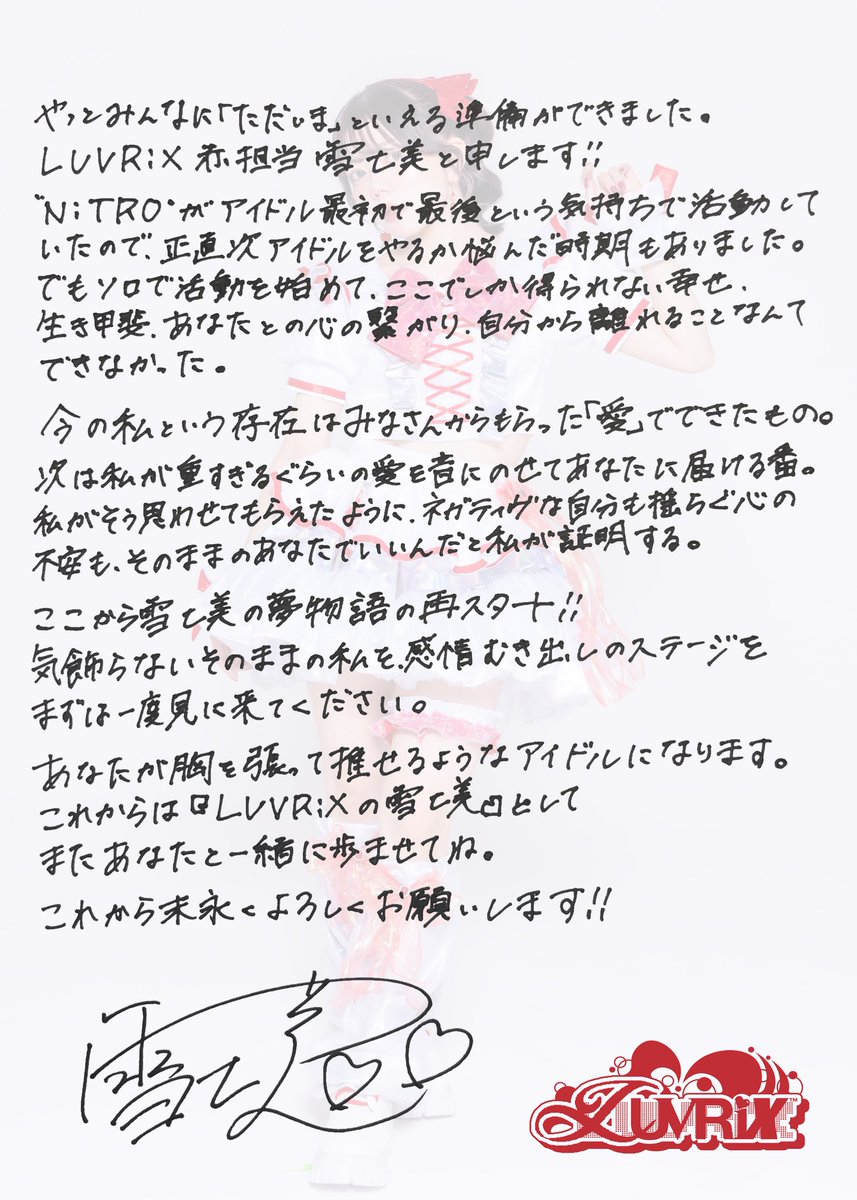 やっとみんなに「ただいま」といえる準備ができました。
LUVRiX 赤担当 雪七美と申します!!
"NiTRO"がアイドル最初で最後という気持ちで活動して
いたので、正直次アイドルをやるか悩んだ時期もありました。
でもソロで活動を始めて、ここでしか得られない幸せ、
生き甲斐、あなたとの心の繋がり、自分から離れることなんて
できなかった。
今の私という存在はみなさんからもらった「愛」でできたもの。
次は私が重すぎるぐらいの愛を音にのせてあなたに届ける番。
私がそう思わせてもらえたように、ネガティヴな自分も揺らぐ心の
不安も、そのままのあなたでいいんだと私が証明する。
ここから雪七美の夢物語の再スタート!!
気飾らないそのままの私を、感情むき出しのステージを
まずは一度見に来てください。
あなたが胸を張って推せるようなアイドルになります。
これからは『LUVRiXの雪七美』として
またあなたと一緒に歩ませてね。
これから末永くよろしくお願いします!!
雪七美
LUVRiX